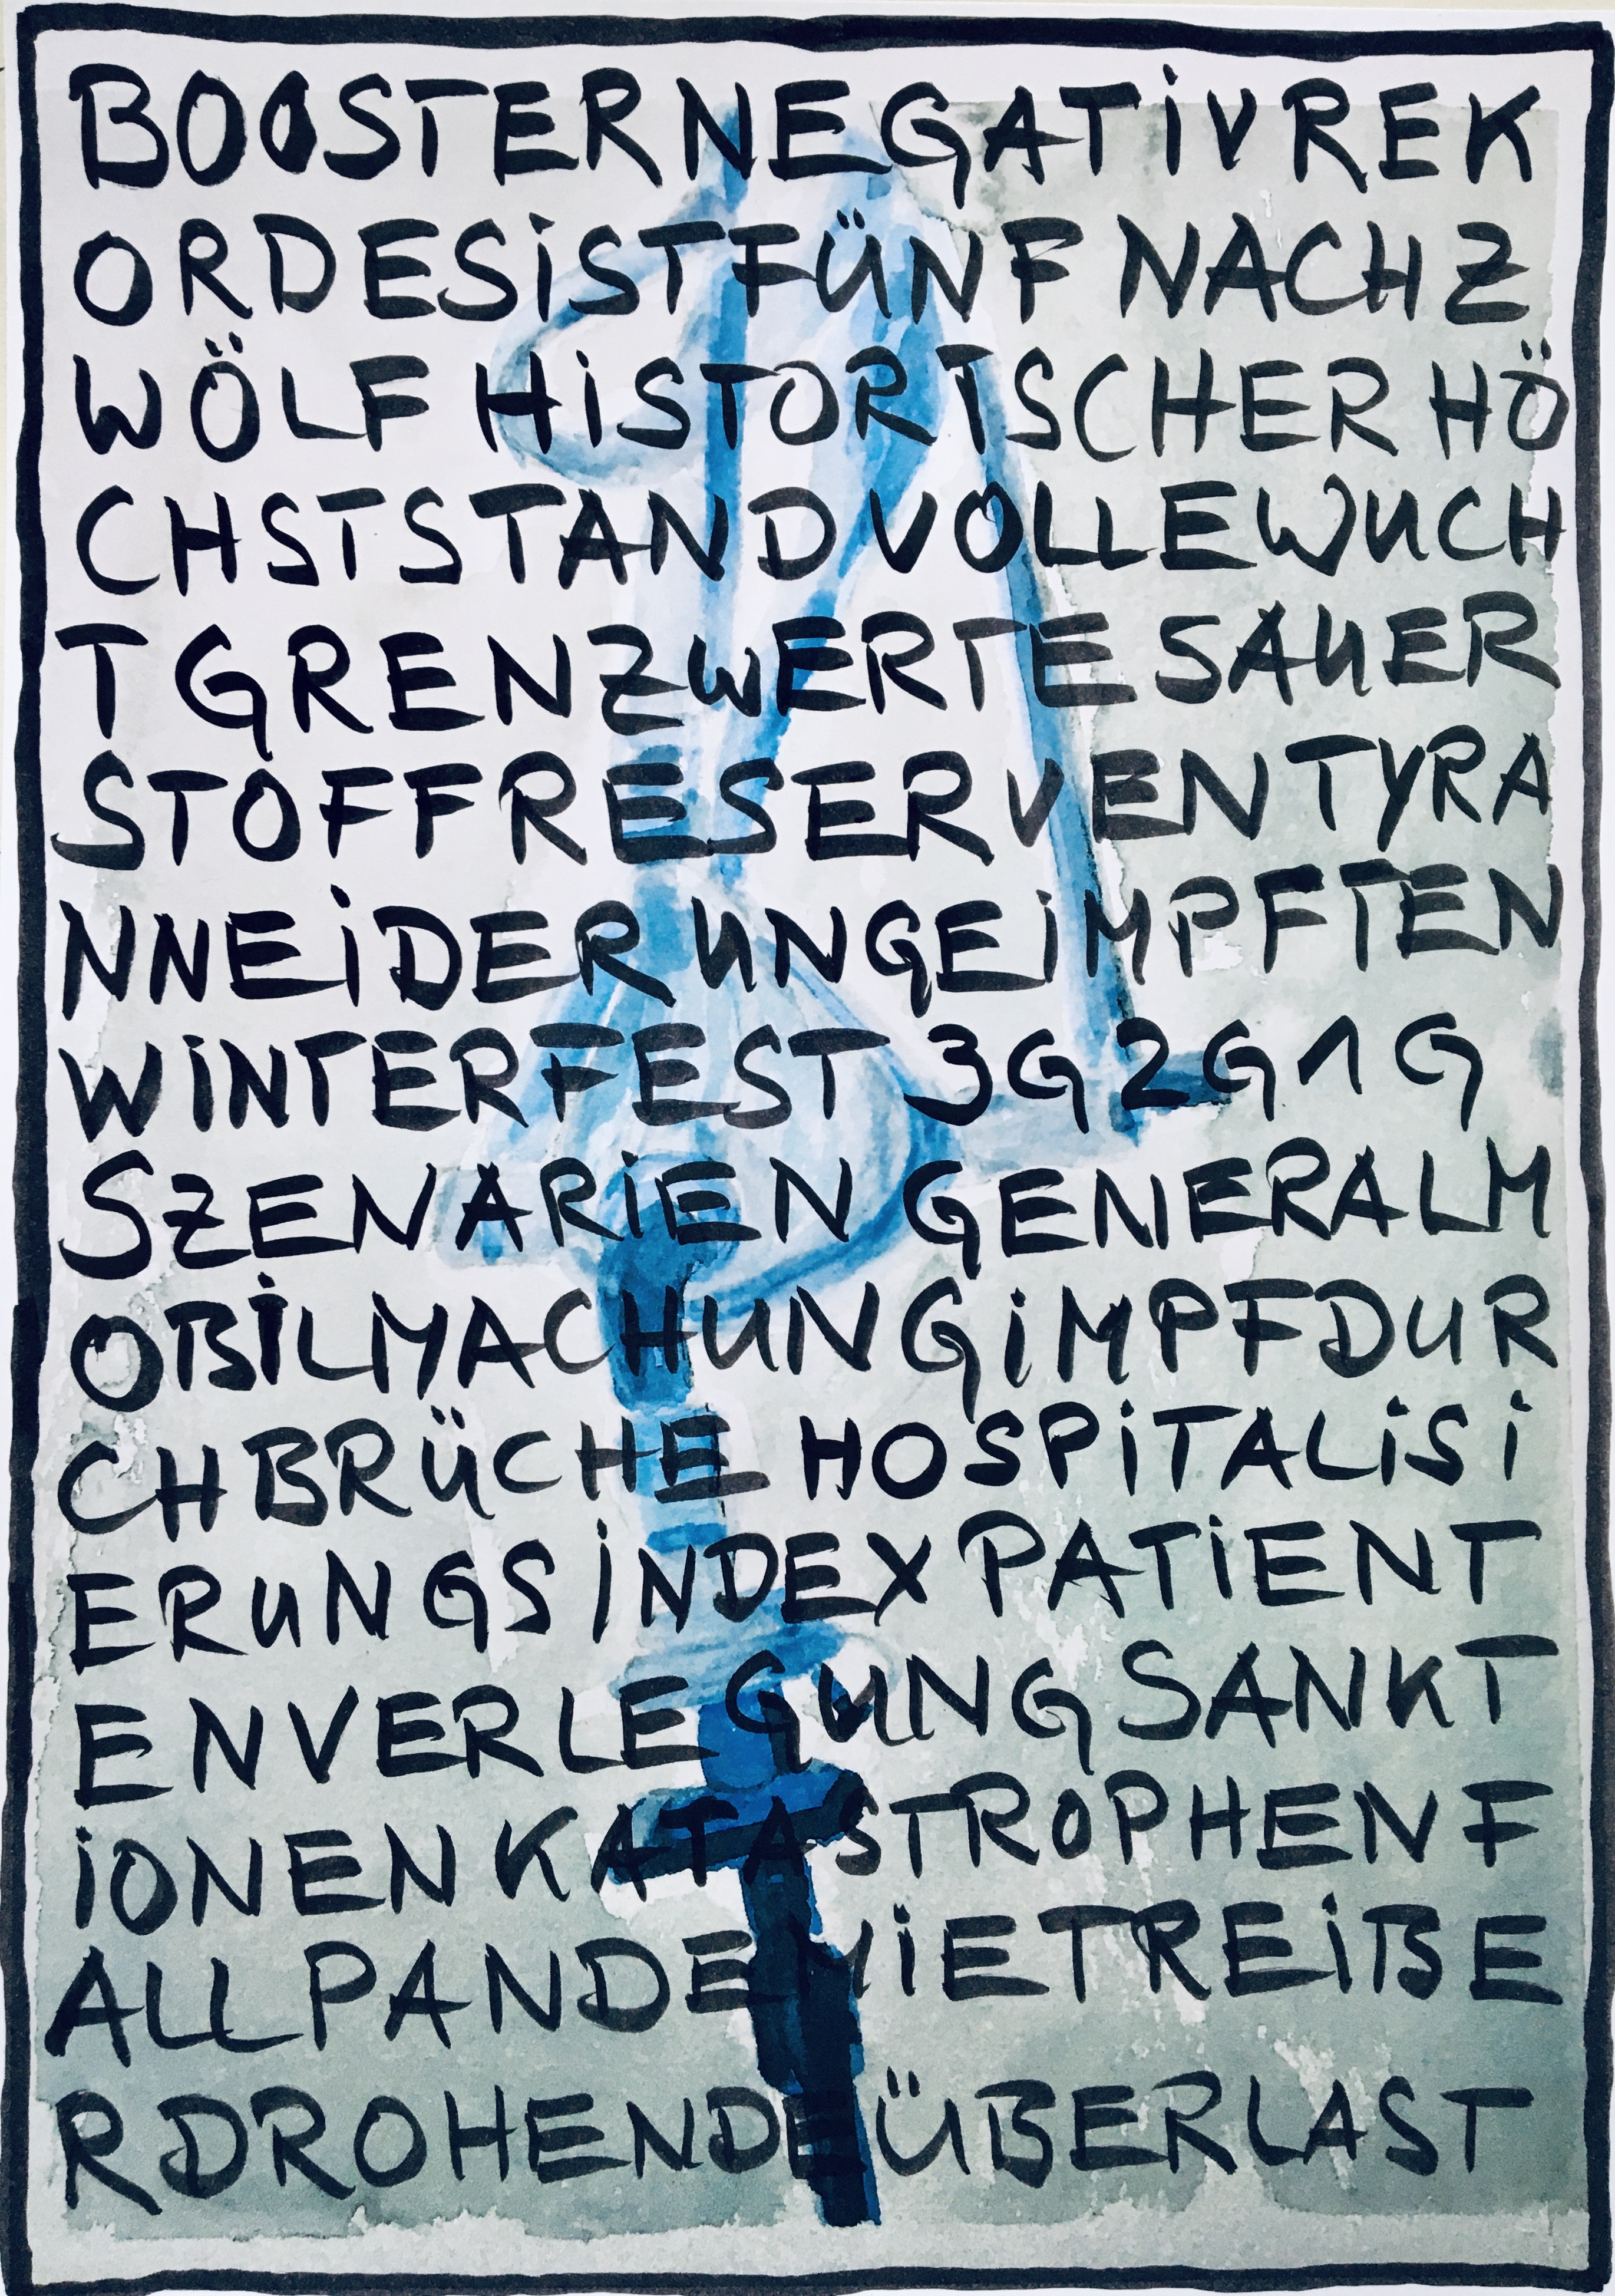 BOOSTERNEGATIVREK
ORDESISTFÜNFNACHZ
WÖLFHISTORISCHERHÖ
CHSTSTANDVOLLEWUCH
TGRENZWERTESAUER
STOFFRESERVENTYRA
NNEIDERUNGEIMPFTEN
WINTERFEST3G2G1G
SZENARIENGENERALM
OBILMACHUNGIMPFDUR
CHBRÜCHEHOSPITALISI
ERUNGSINDEXPATIENT
ENVERLEGUNGSANKT
IONENKATASTROPHENF
ALLPANDEMIETREIBE
RDROHENDEÜBERLAST